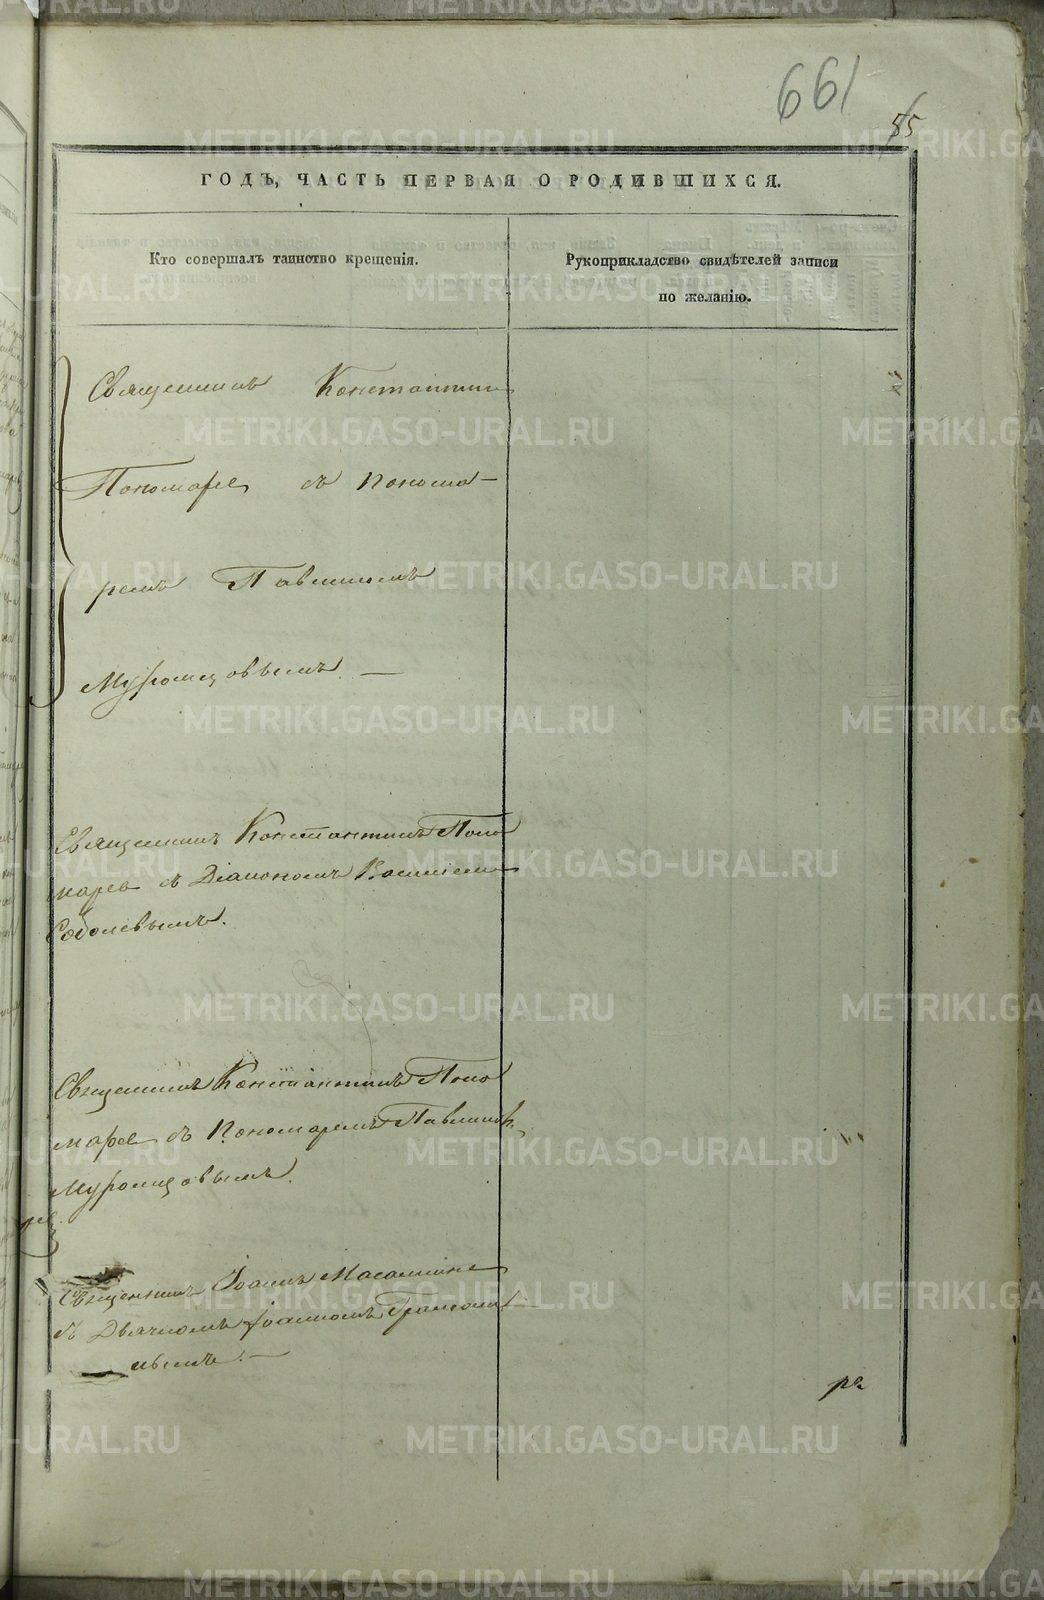 661
85
ГОДЪ, ЧАСТЬ ПЕРВАЯ О РОДИВШИХСЯ.
Кто совершалъ таинство крещенія.
Рукоприкладство свидѣтелей записи
по желанію.
Священникъ Константинъ
Пономаревъ съ Понома-
ремъ Павлиномъ
Муромцовымъ. —
Священникъ Константинъ Поно
маревъ съ Діакономъ
Соболевымъ.
Священникъ Константинъ Поно
маревъ съ Пономаремъ Павлиномъ
Муромцовымъ.
Священникъ Іоаннъ
съ Дьячкомъ Іоанномъ
METRIKI.GASO-URAL.RU